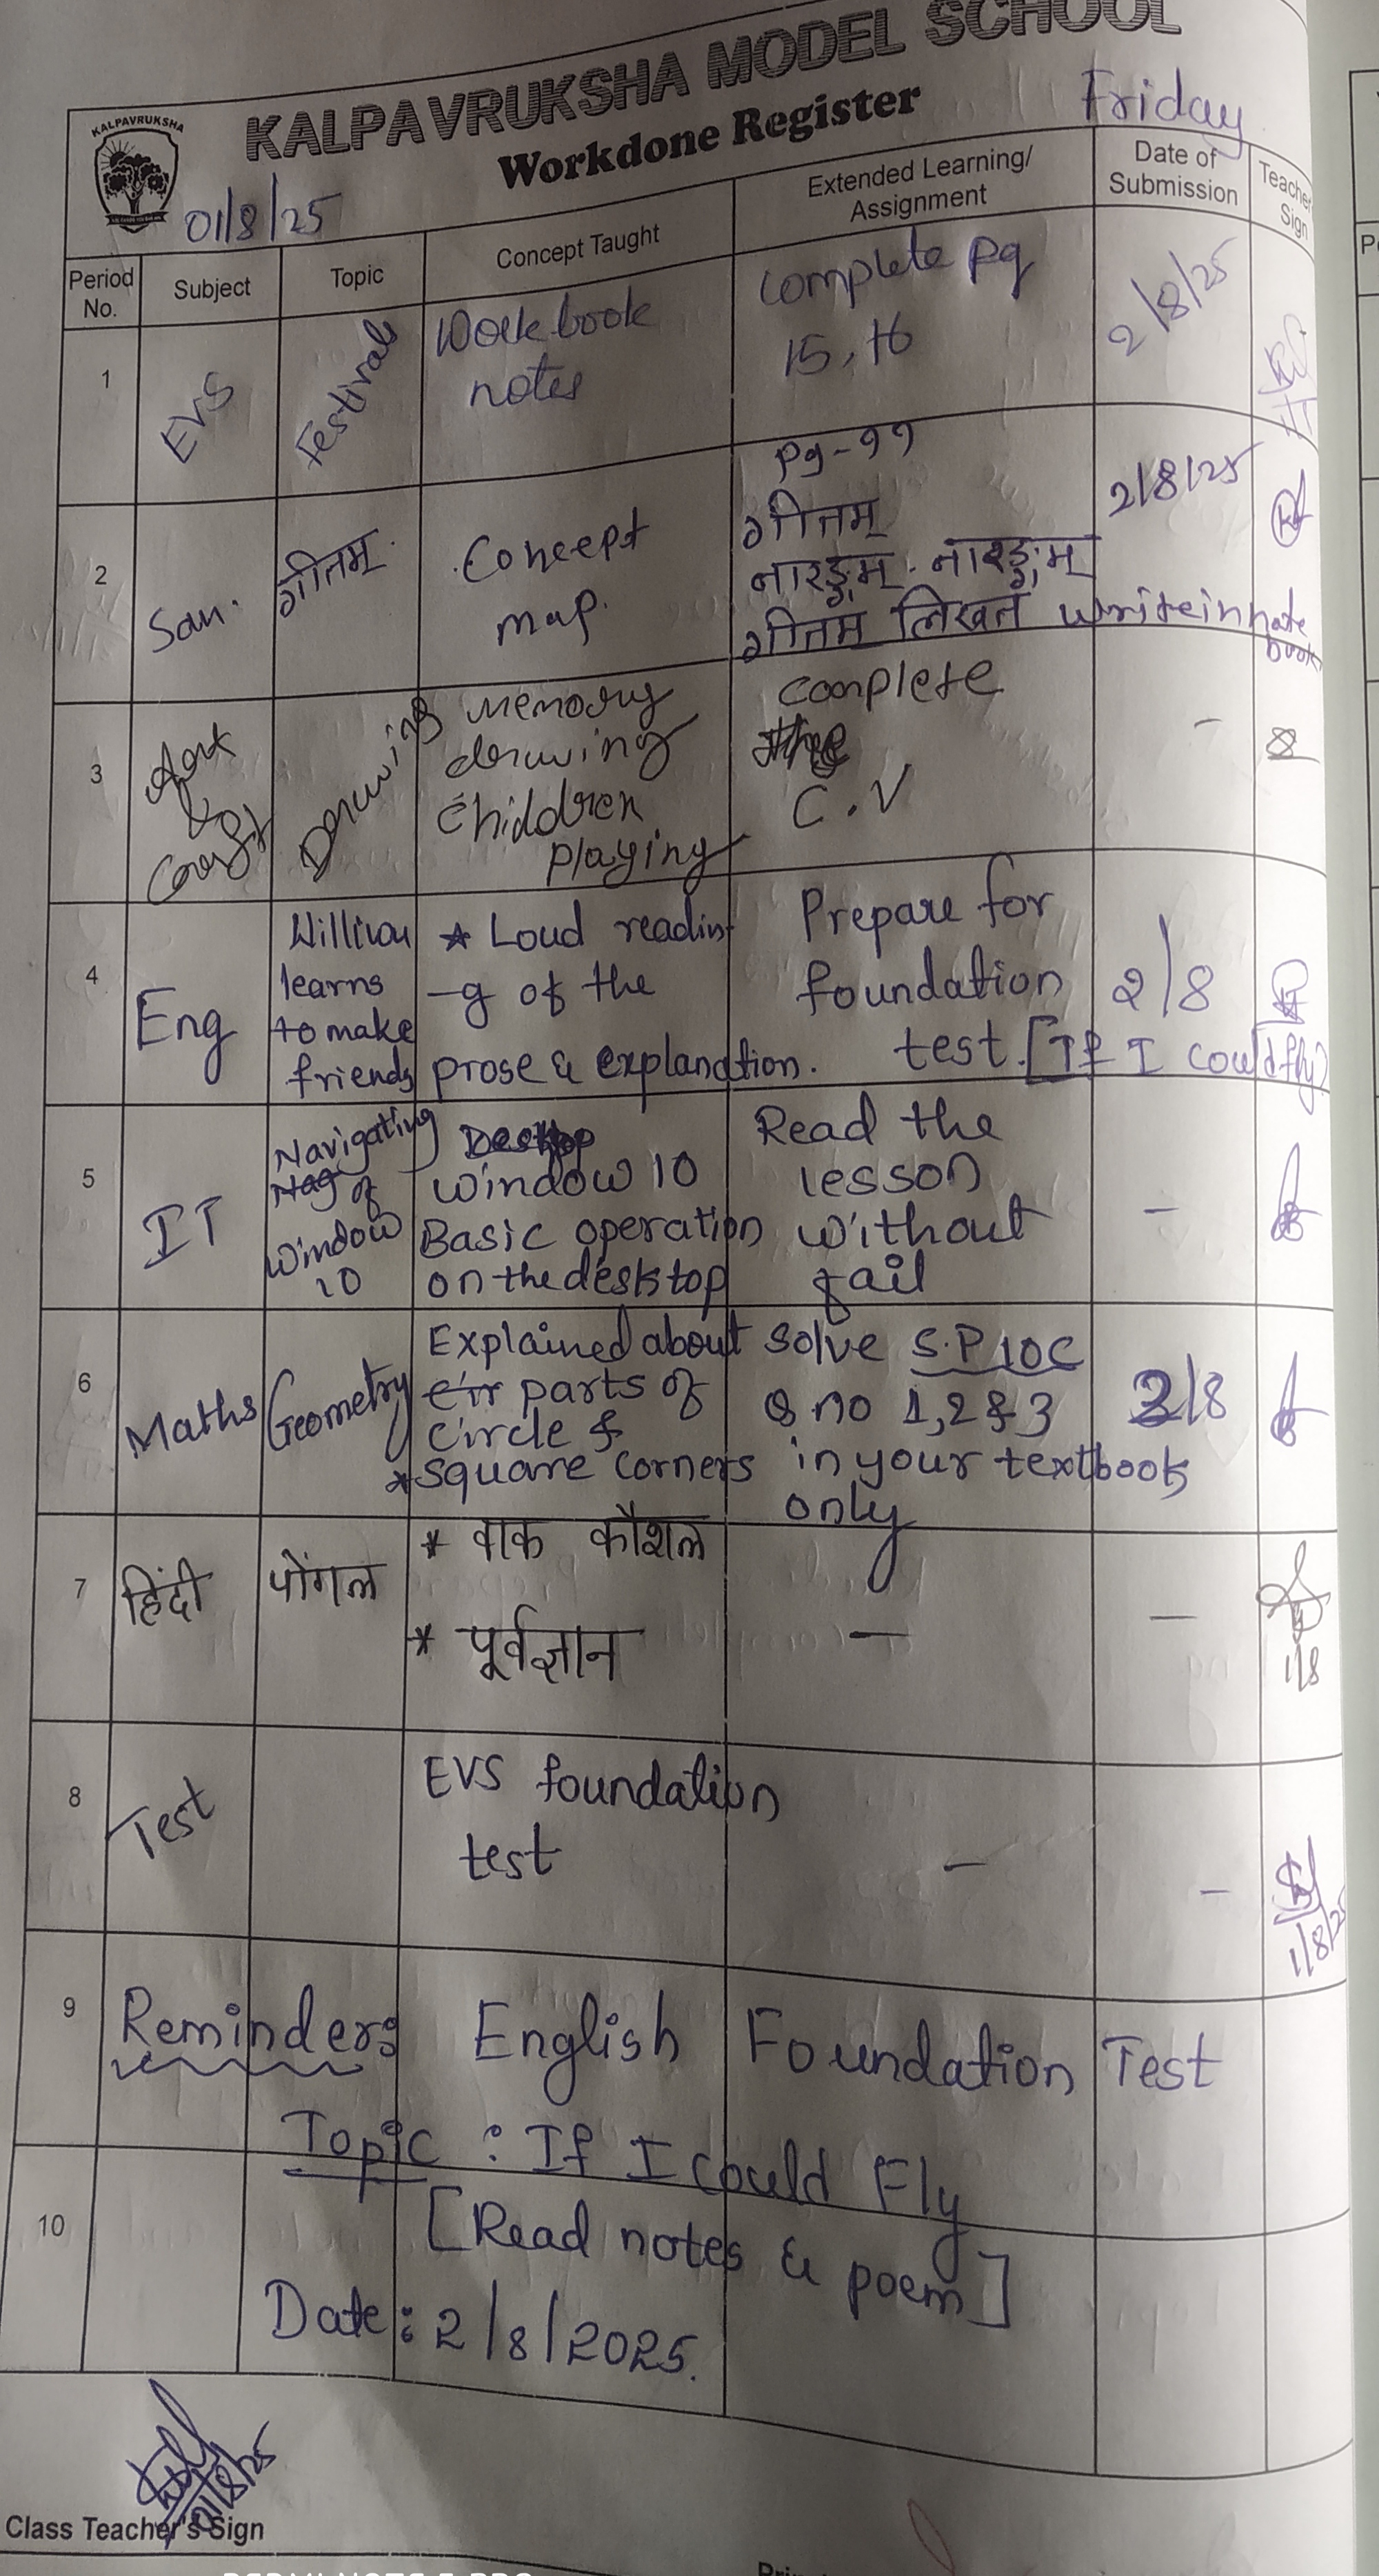 KALPAVRUKSHA MODEL SCHOOL
KALPAVRUKSHA
Workdone Register
Friday
01/8/25
Period No.
Subject
Topic
Concept Taught
Extended Learning/
Assignment
Date of
Submission
Teacher
Sign
1
EVS
Festivals
Workbook
notes
Complete pg
15, 16
2/8/25
2
San.
गीतम्
Concept
map.
pg-११
गीतम्
नारङ्गम्. नारङ्गम्
गीतम् लिखत write in note
book
2/8/25
3
Art
&
Craft
Drawing
Memory
drawing
Children
playing
complete
the
C.V
-
4
Eng
William
learns
to make
friends
* Loud readin
-g of the
prose & explanation.
Prepare for
foundation
test.[If I could fly]
2/8
5
IT
Navigating
of
window
10
Desktop
window 10
Basic operation
on the desktop
Read the
lesson
without
fail
-
6
Maths
Geometry
Explained about
cir parts of
circle &
*square corners
solve S.P 10C
Q no 1,2 & 3
in your textbook
only
2/8
7
हिंदी
पोंगल
* वाक कौशल
* पूर्वज्ञान
-
-
1/8
8
Test
EVS foundation
test
-
-
1/8/25
9
Reminders English Foundation Test
Topic : If I could Fly
10
[Read notes & poem]
Date: 2/8/2025.
01/8/25
Class Teacher's Sign